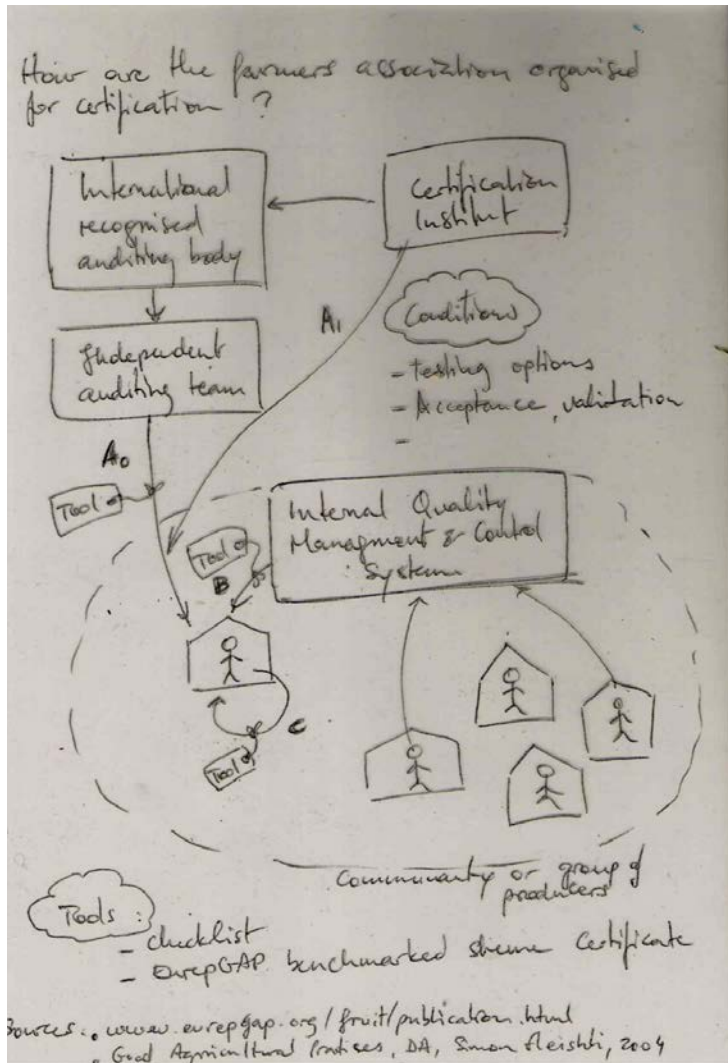 How are the farmers association organised
for certification ?
International
recognised
auditing body
Certification
Institut
A1
Conditions
- testing options
- Acceptance, validation
-
Independent
auditing team
A0
Tool
Internal Quality
Managment & Control
System
Tool
B
C
Tool
Community or group of
producers
Tools :
- checklist
- EurepGAP benchmarked sheme certificate
Sources : . www.eurepgap.org/fruit/publication.html
. Good Agricultural Practises, DA, Simon 2004